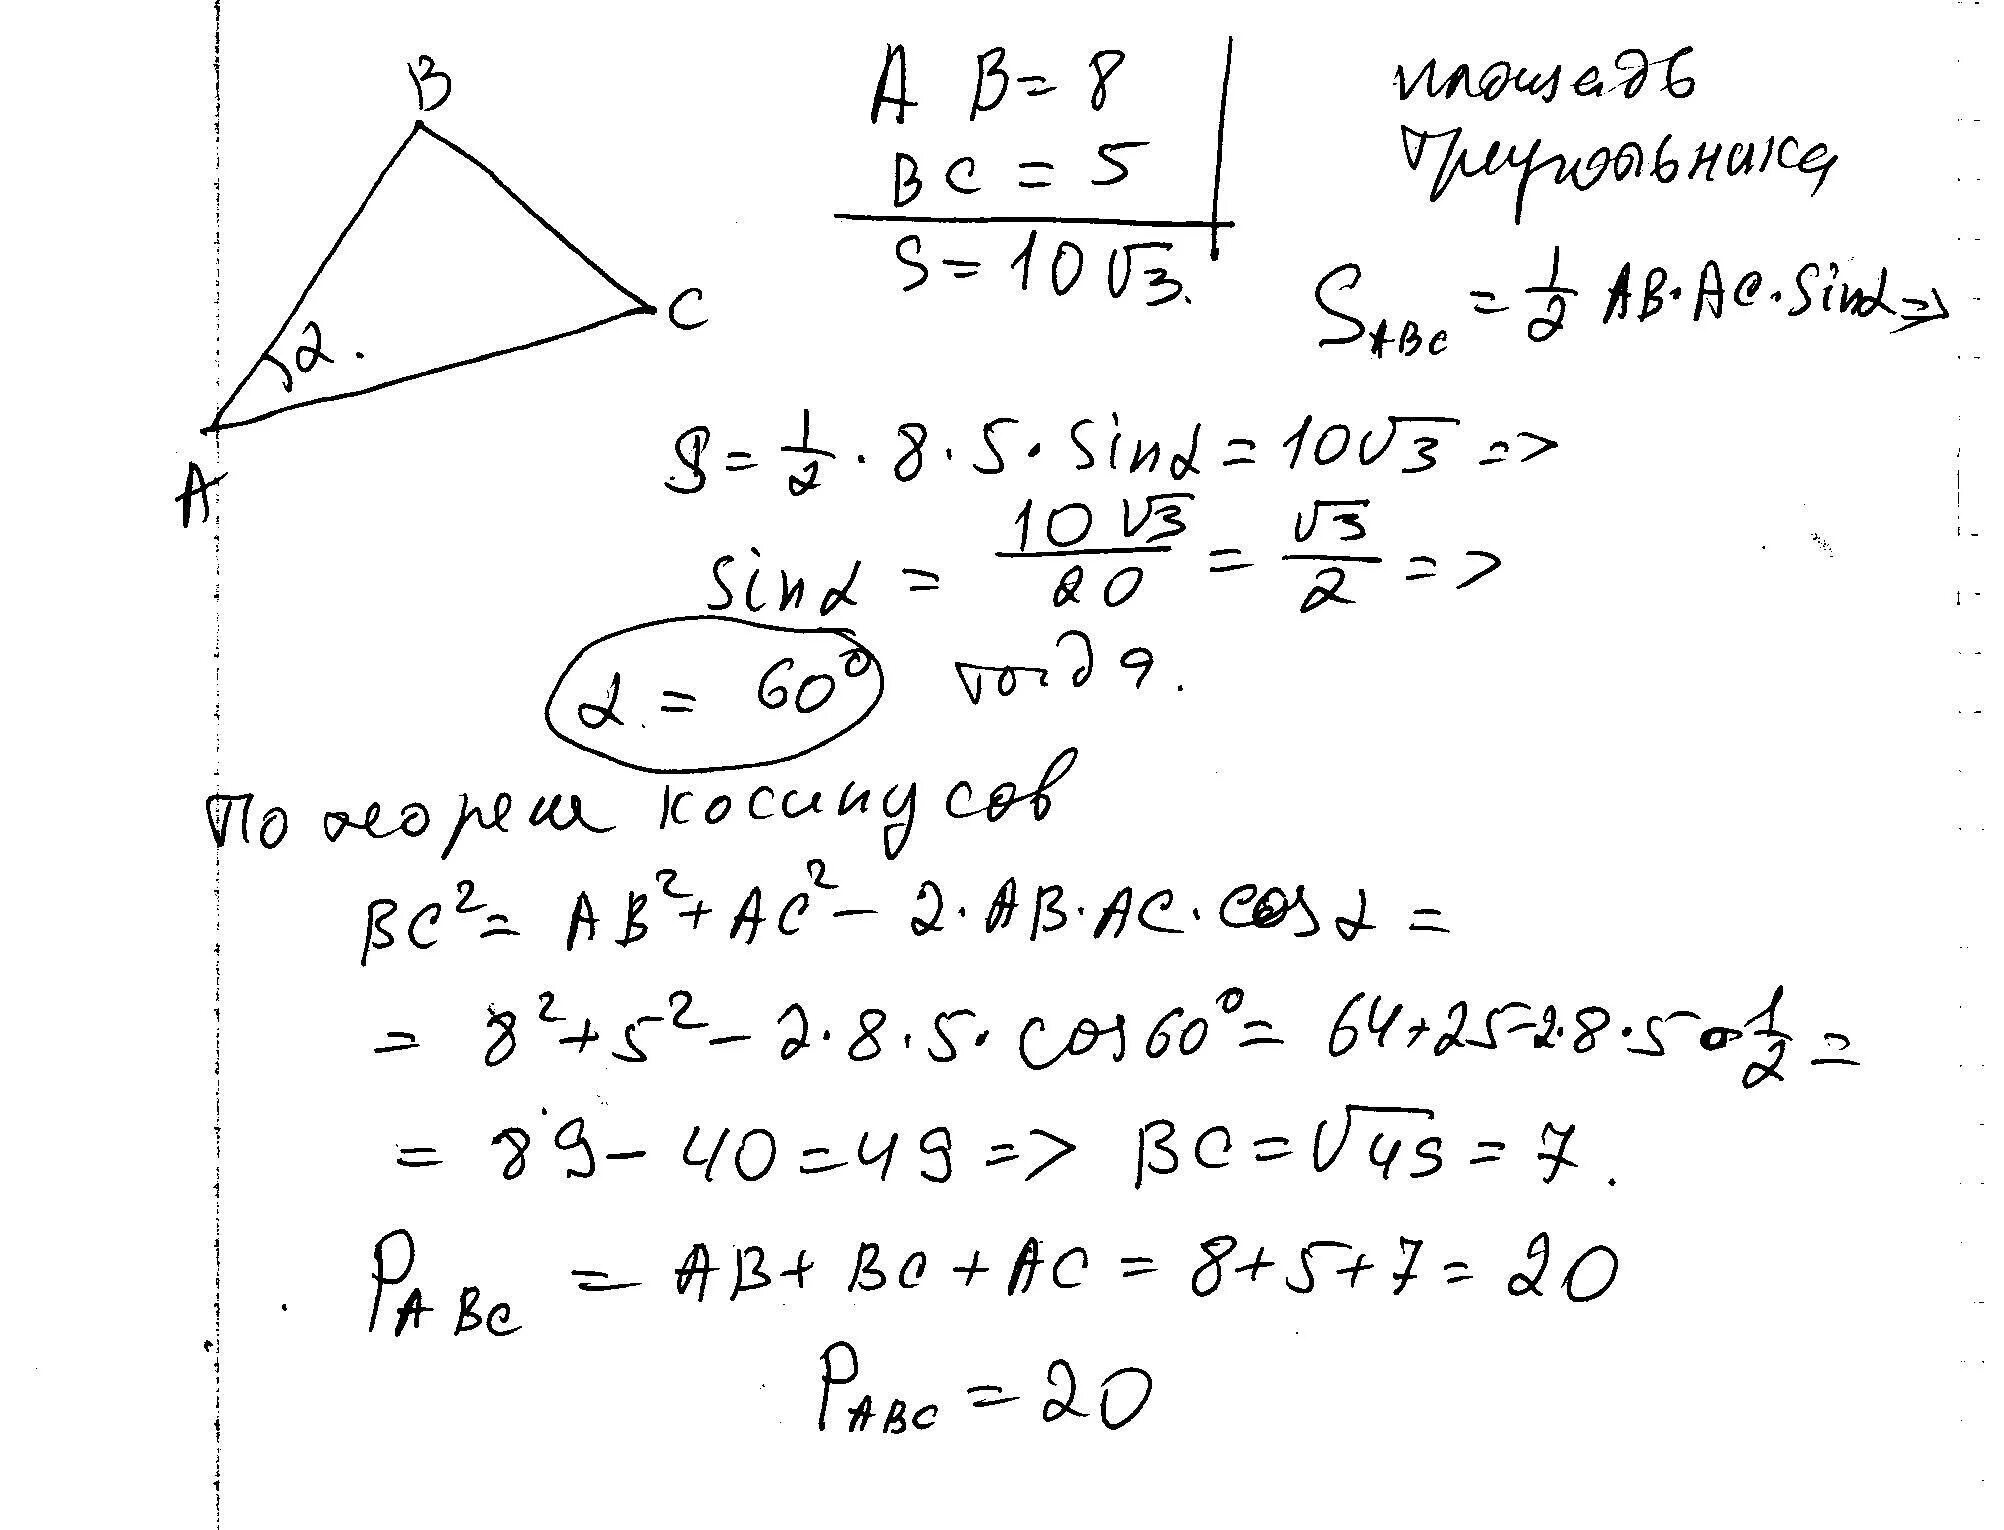 B
C
α.
A
AB = 8
BC = 5
S = 10√3.
площадь
треугольника
S_ABC = 1/2 AB · AC · sinα =>
S = 1/2 · 8 · 5 · sinα = 10√3 =>
sinα = 10√3/20 = √3/2 =>
α = 60° тогда.
По теореме косинусов
BC² = AB² + AC² - 2 · AB · AC · cosα =
= 8² + 5² - 2 · 8 · 5 · cos60° = 64 + 25 - 2 · 8 · 5 · 1/2 =
= 89 - 40 = 49 => BC = √49 = 7.
P_ABC = AB + BC + AC = 8 + 5 + 7 = 20
P_ABC = 20